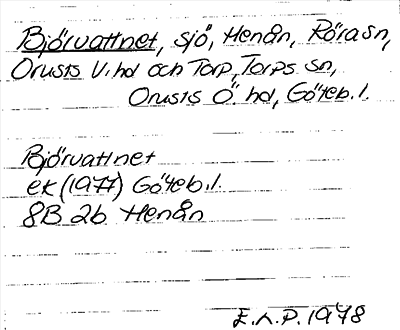 Björvattnet, sjö, Henån, Röra sn,
Orusts V. hd och Torp, Torps sn,
Orusts Ö. hd, Göteb. l.
Björvattnet
ek (1977) Göteb. l.
8B 2b Henån
E.L.P. 1978